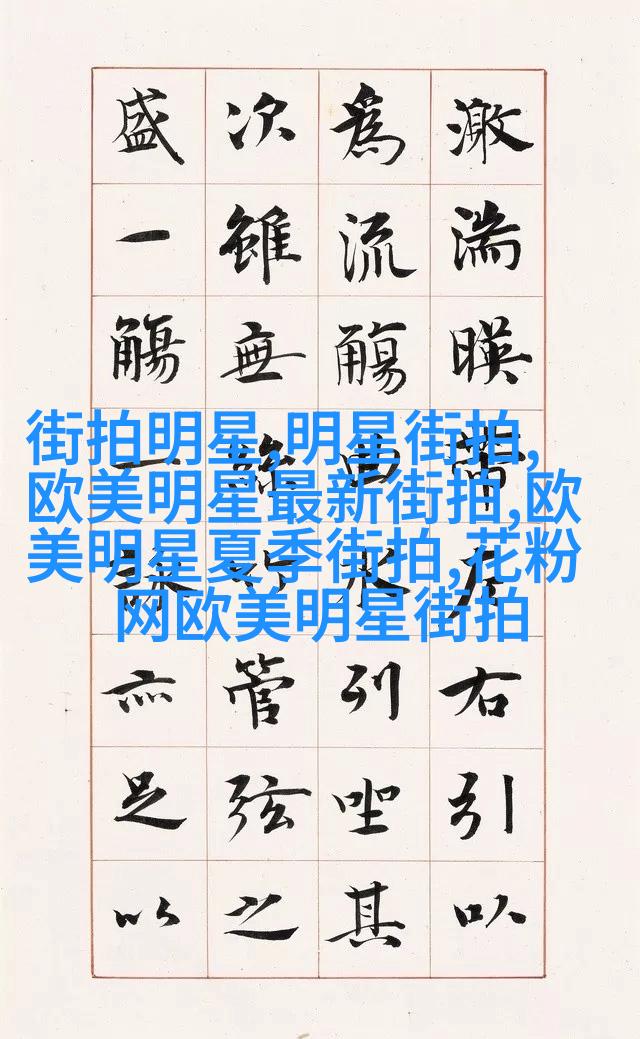 激湍暎帶左右引以
為流觴曲水列坐其
次雖無絲竹管弦之
盛一觴一詠亦足以
街拍明星,明星街拍,
欧美明星最新街拍,欧
美明星夏季街拍,花粉
网欧美明星街拍